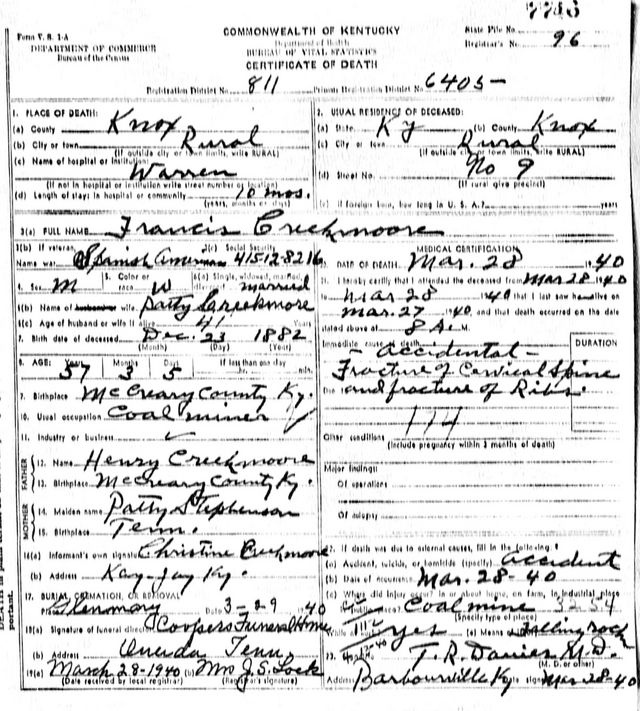 7746
Form V. S. 1-A
DEPARTMENT OF COMMERCE
Bureau of the Census
COMMONWEALTH OF KENTUCKY
Department of Health
BUREAU OF VITAL STATISTICS
CERTIFICATE OF DEATH
State File No.
Registrar's No. 96
Registration District No. 811 Primary Registration District No. 6405-
1. PLACE OF DEATH:
(a) County Knox
(b) City or town Rural
(If outside city or town limits, write RURAL)
(c) Name of hospital or institution:
Warren
(If not in hospital or institution write street number or location)
(d) Length of stay: In hospital or community 10 mos.
(years, months or days)
2. USUAL RESIDENCE OF DECEASED:
(a) State Ky (b) County Knox
(c) City or town Rural
(If outside city or town limits, write RURAL)
(d) Street No. No 9
(If rural give precinct)
(e) If foreign born, how long in U. S. A.? years
3(a) FULL NAME Francis Creekmoore
3(b) If veteran, name war Spanish American 3(c) Social Security 415-12-8216
4. Sex M 5. Color or race W 6(a) Single, widowed, married, married
6(b) Name of husband or wife Patty Creekmore
6(c) Age of husband or wife if alive 41 Years
7. Birth date of deceased Dec. 23 1882
(Month) (Day) (Year)
8. AGE: Years Months Days If less than one day
57 3 5 hr. min.
9. Birthplace McCreary County Ky.
10. Usual occupation Coal miner
11. Industry or business
FATHER
12. Name Henry Creekmoore
13. Birthplace McCreary County Ky.
MOTHER
14. Maiden name Patty Stephenson
15. Birthplace Tenn.
16(a) Informant's own signature Christine Creekmoore
(b) Address Kay-Jay Ky.
17. BURIAL, CREMATION, OR REMOVAL
Glenmary Date 3-29 1940
18(a) Signature of funeral director Coopers Funeral Home
(b) Address Oneida Tenn.
19(a) March 28-1940 (b) Mrs J. S. Lock
(Date received by local registrar) (Registrar's signature)
MEDICAL CERTIFICATION
20. DATE OF DEATH Mar. 28 1940
21. I hereby certify that I attended the deceased from Mar 28 1940
to Mar 28 1940 that I last saw him alive on
Mar. 27 1940 and that death occurred on the date
stated above at 8 A. M.
Immediate cause of death DURATION
- accidental -
Fracture of Cervical Spine
Due to and fracture of Ribs.
Other conditions
(Include pregnancy within 3 months of death)
Major findings:
Of operations
Of autopsy
22. If death was due to external causes, fill in the following:
(a) Accident, suicide, or homicide (specify) accident
(b) Date of occurrence Mar. 28-40
(c) Where did injury occur? In or about home, on farm, in industrial place
Coal mine 3254
(Specify type of place)
While at work? yes (e) Means of injury Falling rock
23. Signature T. R. Davies M.D.
(M. D. or other)
Address Barbourville Ky Date signed Mar 28-40
DEATH in plain terms
portant.